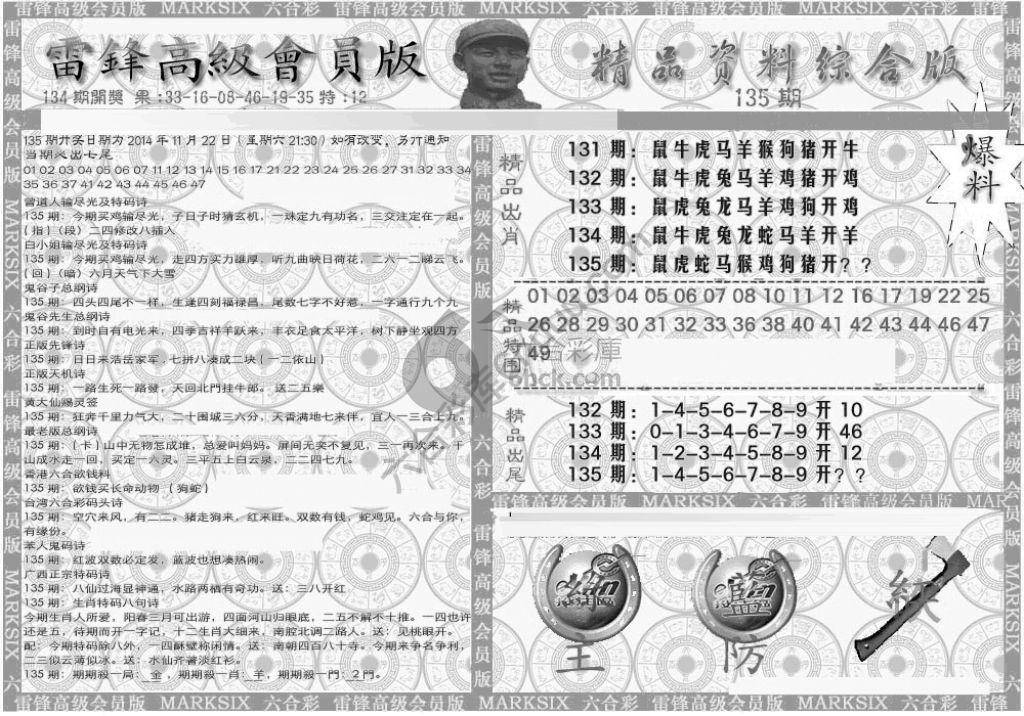 雷锋高级会员版 MARKSIX 六合彩 雷锋高级会员版 MARKSIX 六合彩 雷锋高级会员版 MARKSIX 六合彩
雷鋒高級會員版
精品资料综合版
134期開獎 果:33-16-08-46-19-35特:12
135期
爆料
135期开奖日期为2014年11月22日(星期六21:30)如有改变,另行通知
01 02 03 04 05 06 07 11 12 13 14 15 16 17 21 22 23 24 25 26 27 31 32 33 34
35 36 37 41 42 43 44 45 46 47
曾道人输尽光及特码诗
135期:今期买鸡输尽光,子日子时猜玄机,一珠定九有功名,三交注定在一起。
(指)(段)二四修改八插入
白小姐输尽光及特码诗
135期:今期买鸡输尽光,走四方买力雄厚,听九曲映日荷花,二六一二睇云飞。
(回)(暗)六月天气下大雪
鬼谷子总纲诗
135期:四头四尾不一样,生逢四刻福禄昌,尾数七字不好惹,一字通行九个九
鬼谷先生总纲诗
135期:到时自有电光来,四季吉祥羊跃来,丰衣足食太平洋,树下静坐观四方
正版先锋诗
135期:日日来浩岳家军,七拼八凑成二块(一二依山)
正版天机诗
135期:一路生死一路發,天回北門挂牛郎。送二五樂
黄大仙赐灵签
135期:狂奔千里力气大,二十围城三六分,天香满地七来伴,宜人一三合上九。
最老版总纲诗
135期:(卡)山中无物怎成堆,总爱叫妈妈。屏间无奕不复见,三一再次来。千
山成水走一回,买定一六灵。三平五上白云泉,二二四七九。
香港六合欲钱料
135期:欲钱买长命动物 (狗蛇)
台湾六合彩码头诗
135期:空穴来风,有二二。猪走狗来,红来旺。双数有钱,蛇鸡见。六合与你,
有缘份。
苯人鬼码诗
135期:红波双数必定发,蓝波也想凑热闹。
广西正宗特码诗
135期:八仙过海显神通,水路两栖有奇功。送:三八开红
135期:生肖特码八句诗
今期生肖人所爱,阳春三月可出游,四面河山归眼底,二五不解不十推。一四也许
还是五,待期而开一字记,十二生肖大细来,南腔北调二路人。送:见桃眼开。
配:今期特码除八外,一四酥壁称闲情。送:南朝四百八十寺。今期来争名争利,
二三似云薄似冰。送:水仙齐著淡红衫。
135期:期期殺一局:金,期期殺一肖:羊,期期殺一門:2門。
精品出肖
131期:鼠牛虎马羊猴狗猪开牛
132期:鼠牛虎兔马羊鸡猪开鸡
133期:鼠虎兔龙马羊鸡狗开鸡
134期:鼠牛虎兔龙蛇马羊开羊
135期:鼠虎蛇马猴鸡狗猪开??
精品特围
01 02 03 04 05 06 07 08 10 11 12 16 17 19 22 25
26 28 29 30 31 32 33 36 38 40 41 42 43 44 46 47
49
彩庫
6hck.com
精品出尾
132期:1-4-5-6-7-8-9开10
133期:0-1-3-4-6-7-9开46
134期:1-2-3-4-5-8-9开12
135期:1-4-5-6-7-8-9开??
雷锋高级会员版 MARKSIX 六合彩 雷锋高级会员版
主
防
雷锋高级会员版 MARKSIX 六合彩 雷锋高级会员版 MARKSIX 六合彩 雷锋高级会员版 MARKSIX 六合彩